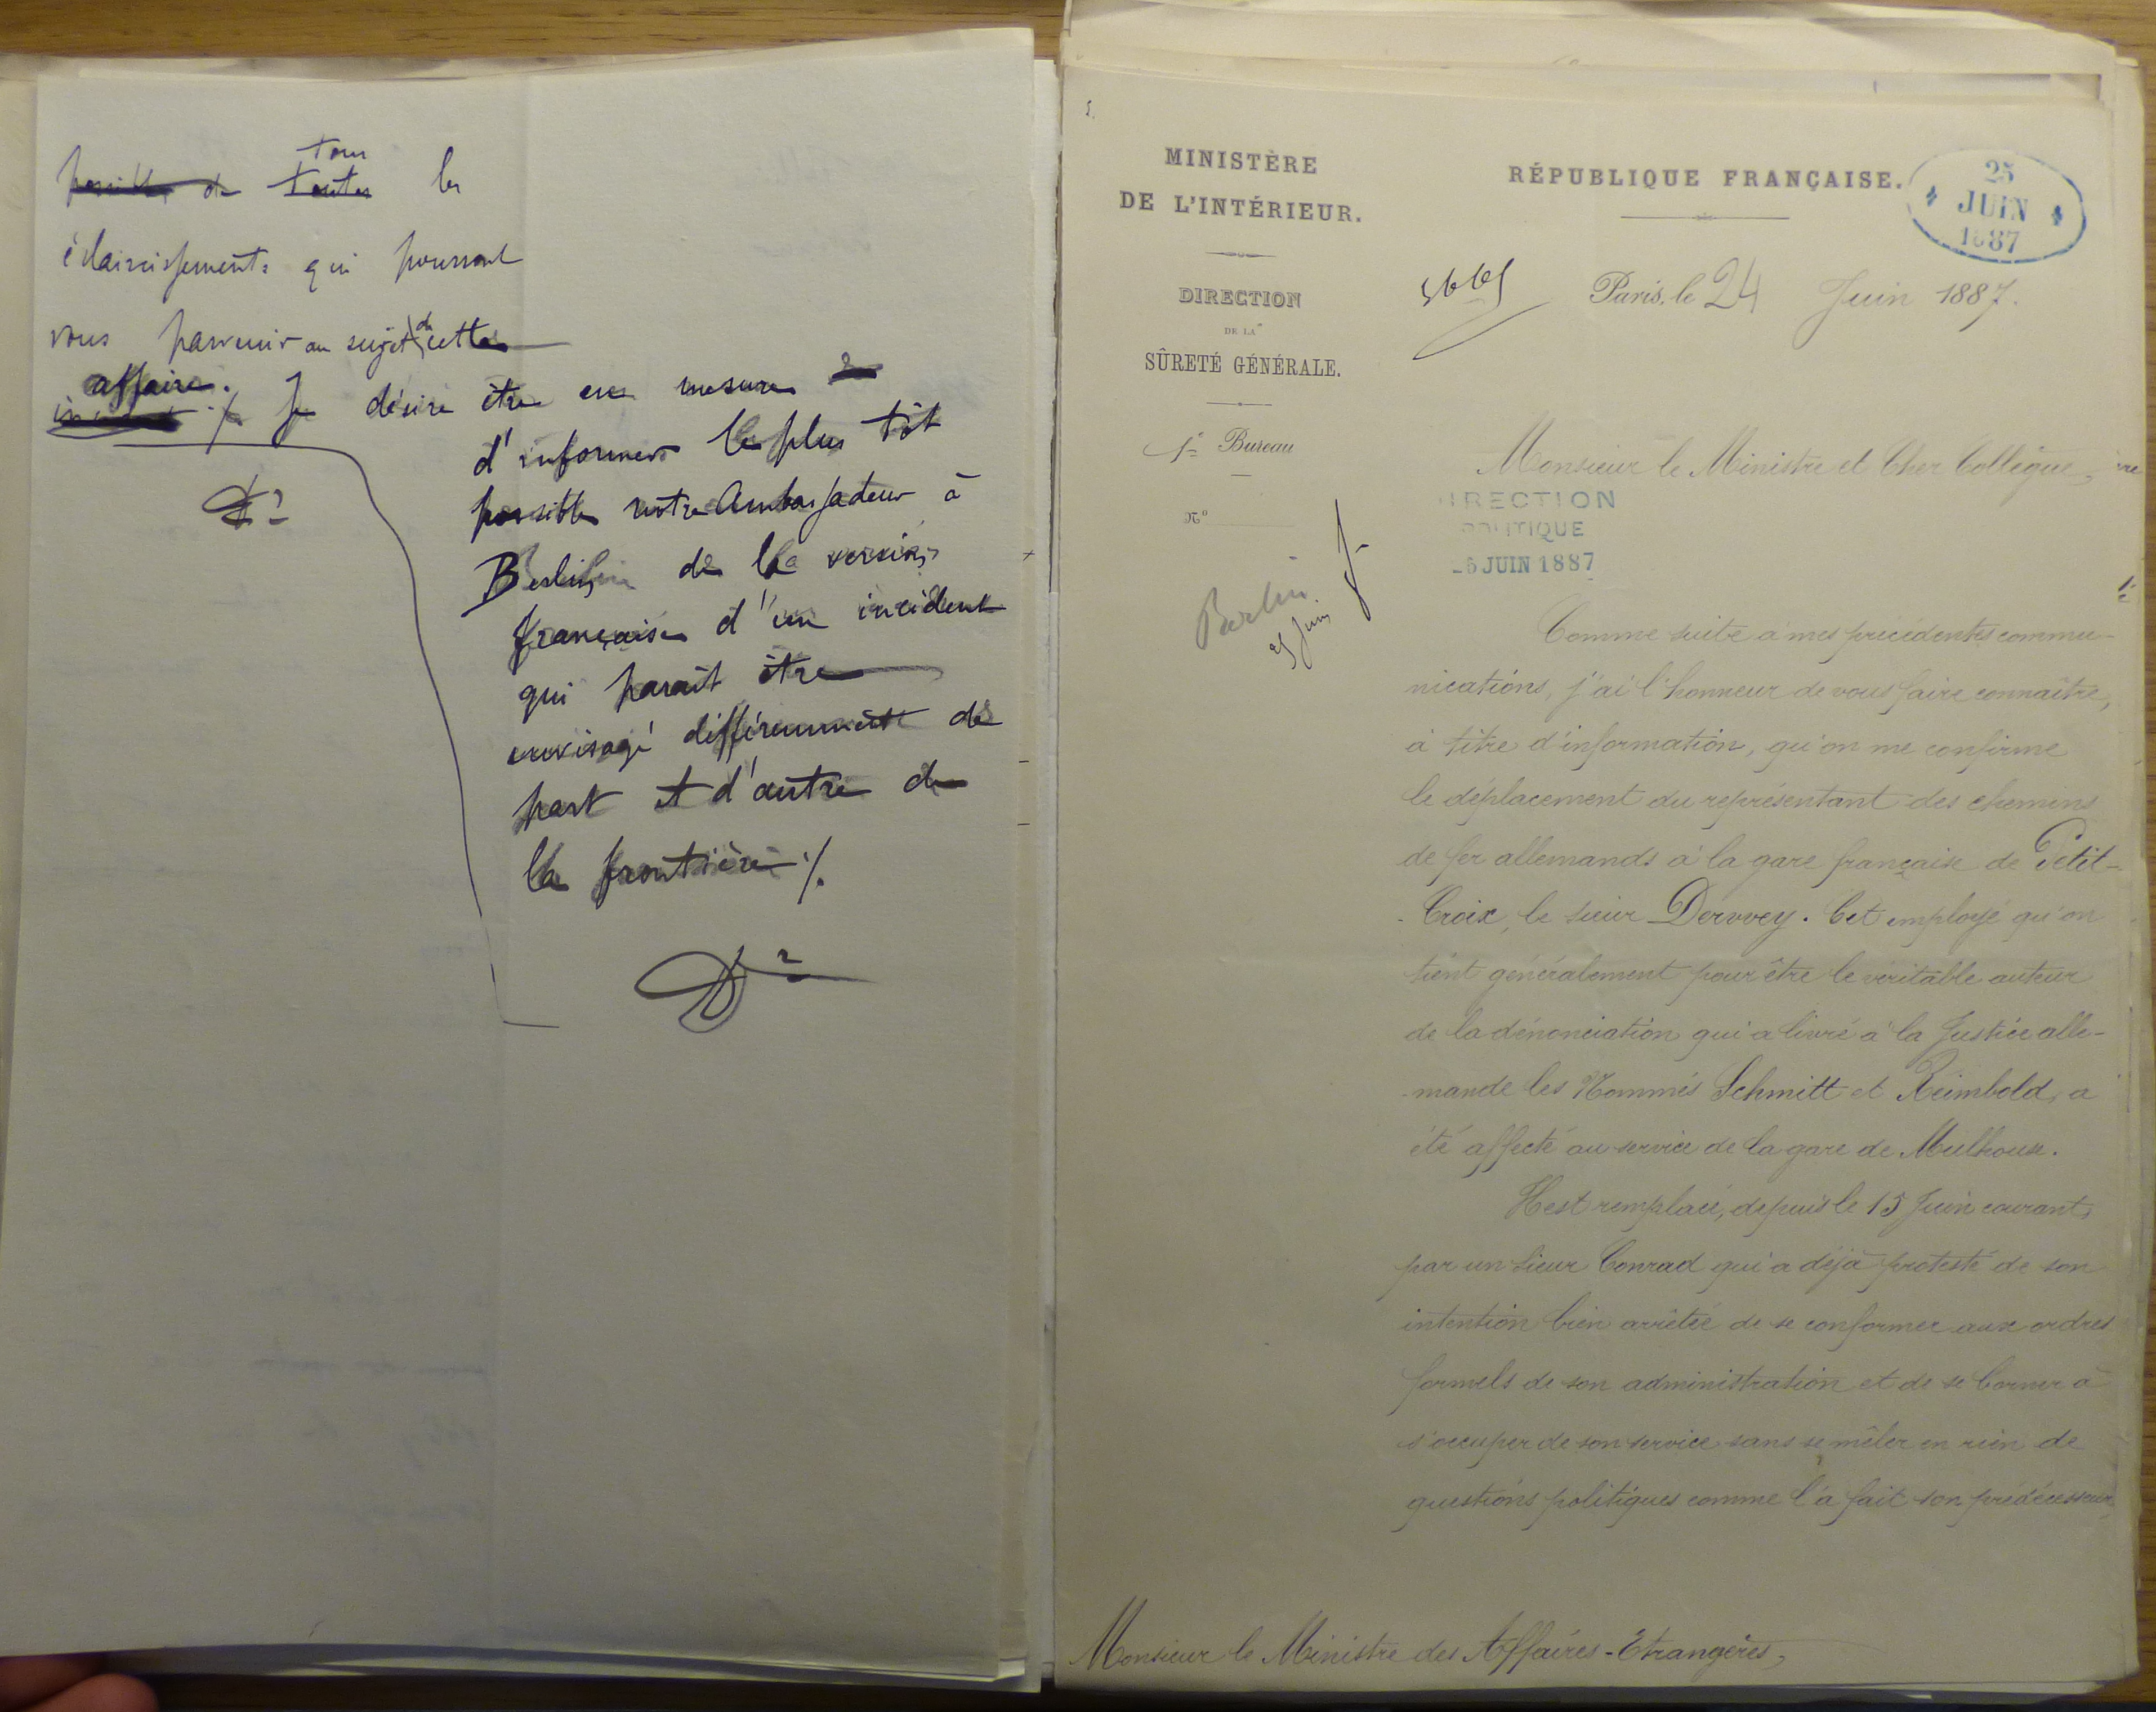 possible de toutes tous les
éclaircissements qui pourront
vous parvenir au sujet de cette
affaire. Je désire être en mesure
d'informer le plus tôt
possible notre Ambassadeur à
Berlin de la version
française d'un incident
qui paraît être
envisagé différemment de
part et d'autre de
la frontière ./.
MINISTÈRE
DE L'INTÉRIEUR.
DIRECTION
DE LA
SÛRETÉ GÉNÉRALE.
1er Bureau
N°
Berlin
25 Juin
RÉPUBLIQUE FRANÇAISE.
25
JUIN
1887
Paris, le 24 Juin 1887.
Monsieur le Ministre et Cher Collègue,
DIRECTION
POLITIQUE
JUIN 1887
Comme suite à mes précédentes commu-
nications, j'ai l'honneur de vous faire connaître,
à titre d'information, qu'on me confirme
le déplacement du représentant des chemins
de fer allemands à la gare française de Petit-
-Croix, le sieur Dervvey. Cet employé qu'on
tient généralement pour être le véritable auteur
de la dénonciation qui a livré à la Justice alle-
-mande les Nommés Schmitt et Reimbold, a
été affecté au service de la gare de Mulhouse.
Il est remplacé, depuis le 15 Juin courant,
par un sieur Conrad qui a déjà protesté de son
intention bien arrêtée de se conformer aux ordres
formels de son administration et de se borner à
s'occuper de son service sans se mêler en rien de
questions politiques comme l'a fait son prédécesseur
Monsieur le Ministre des Affaires-Etrangères,